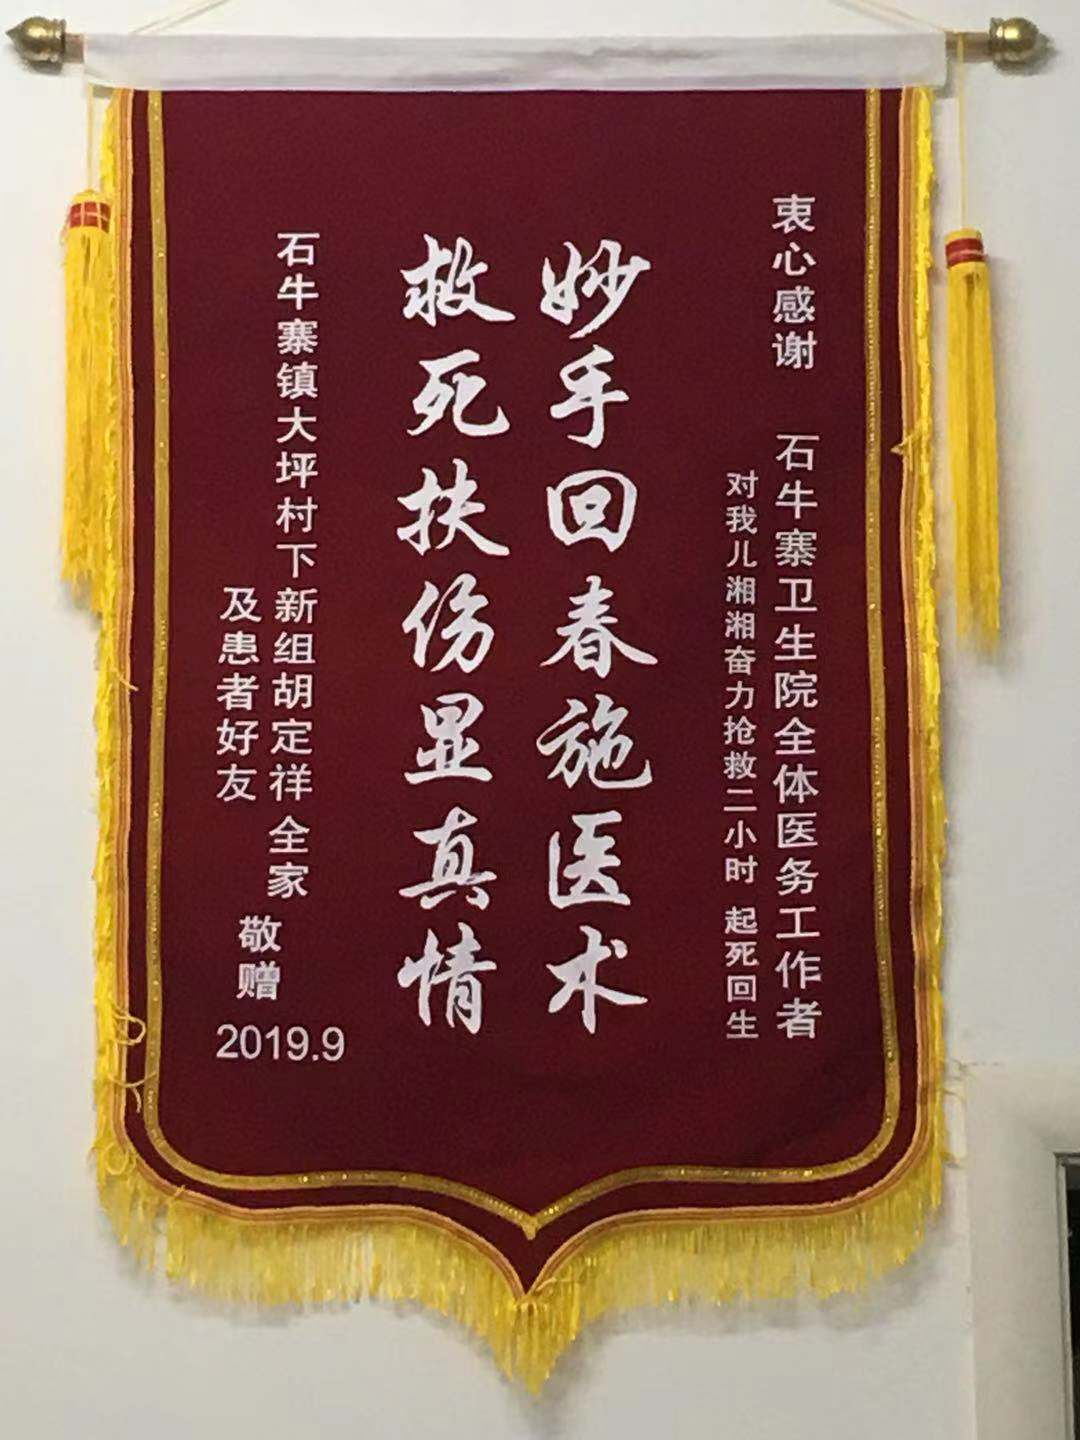 衷心感谢 石牛寨卫生院全体医务工作者
对我儿湘湘奋力抢救二小时 起死回生
妙手回春施医术
救死扶伤显真情
石牛寨镇大坪村下新组胡定祥全家
及患者好友
敬赠
2019.9